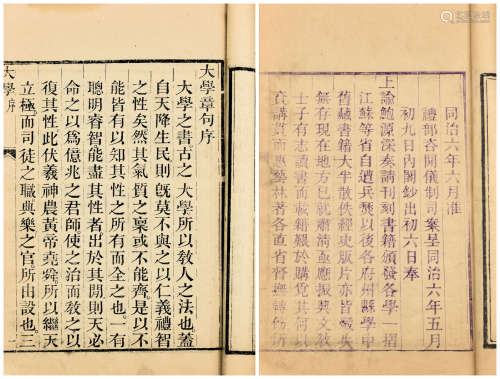 大學章句序
大學之書古之大學所以教人之法也蓋
自天降生民則旣莫不與之以仁義禮智
之性矣然其氣質之稟或不能齊是以不
能皆有以知其性之所有而全之也一有
聰明睿智能盡其性者出於其閒則天必
命之以爲億兆之君師使之治而教之以
復其性此伏羲神農黃帝堯舜所以繼天
立極而司徒之職典樂之官所由設也三
大學序
同治六年六月准
禮部咨開儀制司案呈同治六年五月
初九日內閣鈔出初六日奉
上諭鮑源深奏請刊刻書籍頒發各學一摺
江蘇等省自遭兵燹以後各府州縣學中
舊藏書籍大半散佚經史版片亦皆毀失
無存現在地方已就肅清亟應振興文教
士子有志讀書而載籍艱於購覓其何以
資講貫而惠藝林著各直省督撫轉飭所